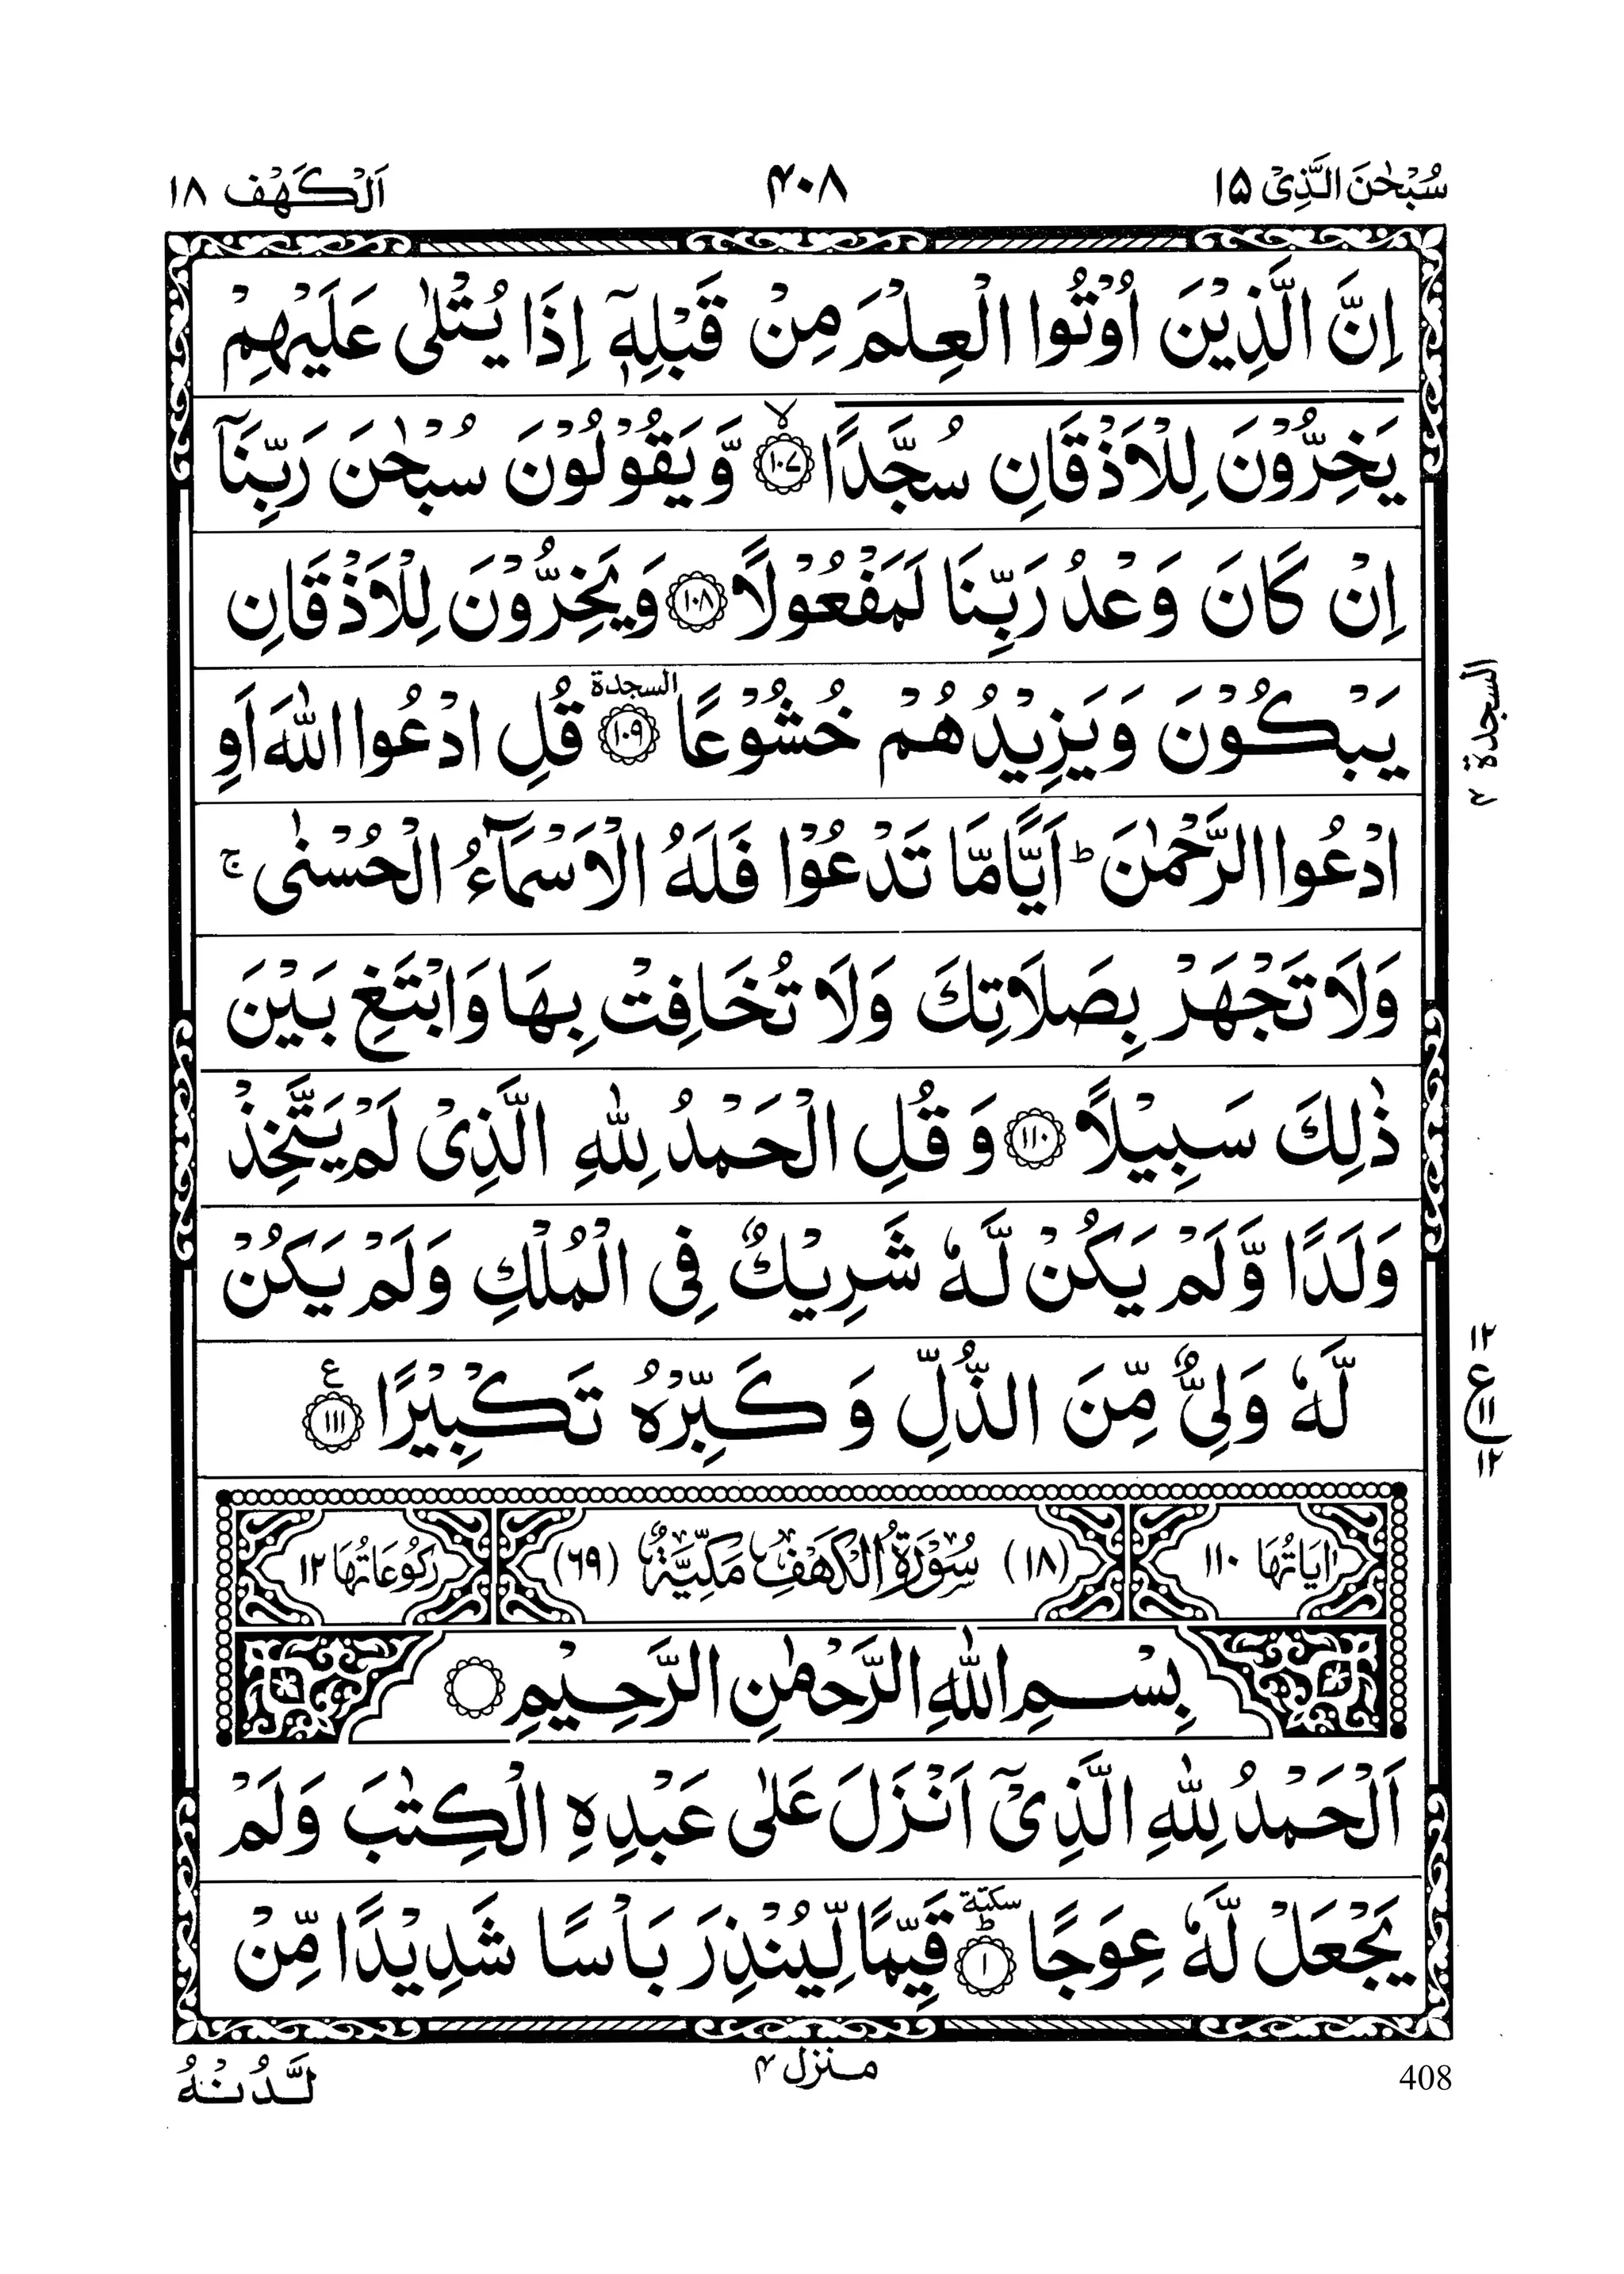 سُبْحٰنَ الَّذِیْ ۱۵
۴۰۸
اَلْكَهْف ۱۸
اِنَّ الَّذِیْنَ اُوْتُوا الْعِلْمَ مِنْ قَبْلِهٖۤ اِذَا یُتْلٰى عَلَیْهِمْ
یَخِرُّوْنَ لِلْاَذْقَانِ سُجَّدًا ﴿۱۰۷﴾ۙ وَّیَقُوْلُوْنَ سُبْحٰنَ رَبِّنَاۤ
اِنْ كَانَ وَعْدُ رَبِّنَا لَمَفْعُوْلًا ﴿۱۰۸﴾ وَیَخِرُّوْنَ لِلْاَذْقَانِ
یَبْكُوْنَ وَیَزِیْدُهُمْ خُشُوْعًا ﴿۱۰۹﴾ السجدة قُلِ ادْعُوا اللّٰهَ اَوِ
السجدة ۴
ادْعُوا الرَّحْمٰنَ ؕ اَیًّامَّا تَدْعُوْا فَلَهُ الْاَسْمَآءُ الْحُسْنٰى ۚ
وَلَا تَجْهَرْ بِصَلَاتِكَ وَلَا تُخَافِتْ بِهَا وَابْتَغِ بَیْنَ
ذٰلِكَ سَبِیْلًا ﴿۱۱۰﴾ وَ قُلِ الْحَمْدُ لِلّٰهِ الَّذِیْ لَمْ یَتَّخِذْ
وَلَدًا وَّلَمْ یَكُنْ لَّهٗ شَرِیْكٌ فِی الْمُلْكِ وَلَمْ یَكُنْ
لَّهٗ وَلِیٌّ مِّنَ الذُّلِّ وَ كَبِّرْهُ تَكْبِیْرًا ﴿۱۱۱﴾ ع
۱۲
ع ۱۱
۱۲
اٰیَاتُهَا ۱۱۰
(۱۸) سُوْرَةُ الْكَهْفِ مَكِّیَّةٌ (۶۹)
رُكُوْعَاتُهَا ۱۲
بِسْمِ اللّٰهِ الرَّحْمٰنِ الرَّحِیْمِ
اَلْحَمْدُ لِلّٰهِ الَّذِیْۤ اَنْزَلَ عَلٰى عَبْدِهِ الْكِتٰبَ وَلَمْ
یَجْعَلْ لَّهٗ عِوَجًا ﴿۱﴾ؕ سكتة قَیِّمًا لِّیُنْذِرَ بَاْسًا شَدِیْدًا مِّنْ
لَّدُنْهُ
منزل ۴
408